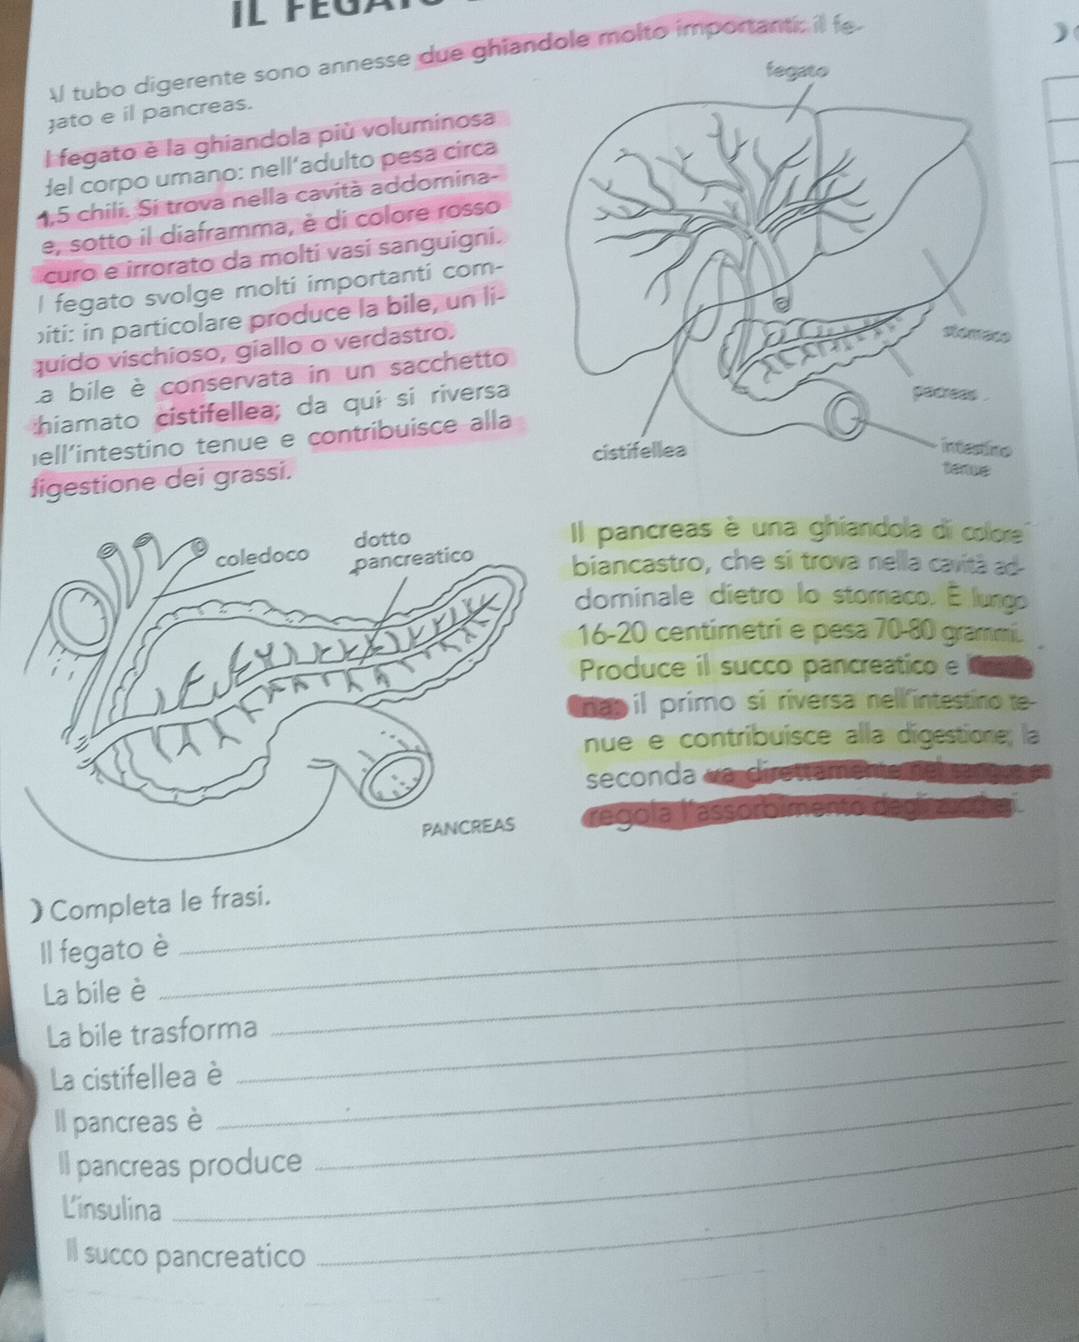 IL FEGATO
Al tubo digerente sono annesse due ghiandole molto importanti: il fe-
gato e il pancreas.
l fegato è la ghiandola più voluminosa
del corpo umano: nell'adulto pesa circa
1,5 chili. Si trova nella cavità addomina-
e, sotto il diaframma, è di colore rosso
curo e irrorato da molti vasi sanguigni.
l fegato svolge molti importanti com-
piti: in particolare produce la bile, un li-
quido vischioso, giallo o verdastro.
La bile è conservata in un sacchetto
chiamato cistifellea; da qui si riversa
nell'intestino tenue e contribuisce alla
digestione dei grassi.
fegato
stomaco
pacreas
intestino
tenue
cistifellea
coledoco
dotto
pancreatico
PANCREAS
Il pancreas è una ghiandola di colore
biancastro, che si trova nella cavità ad-
dominale dietro lo stomaco. È lungo
16-20 centimetri e pesa 70-80 grammi.
Produce il succo pancreatico e l'insuli-
na: il primo si riversa nell'intestino te-
nue e contribuisce alla digestione; la
seconda va direttamente nel sangue e
regola l'assorbimento degli zuccheri.
Completa le frasi.
Il fegato è
La bile è
La bile trasforma
La cistifellea è
Il pancreas è
Il pancreas produce
L'insulina
Il succo pancreatico